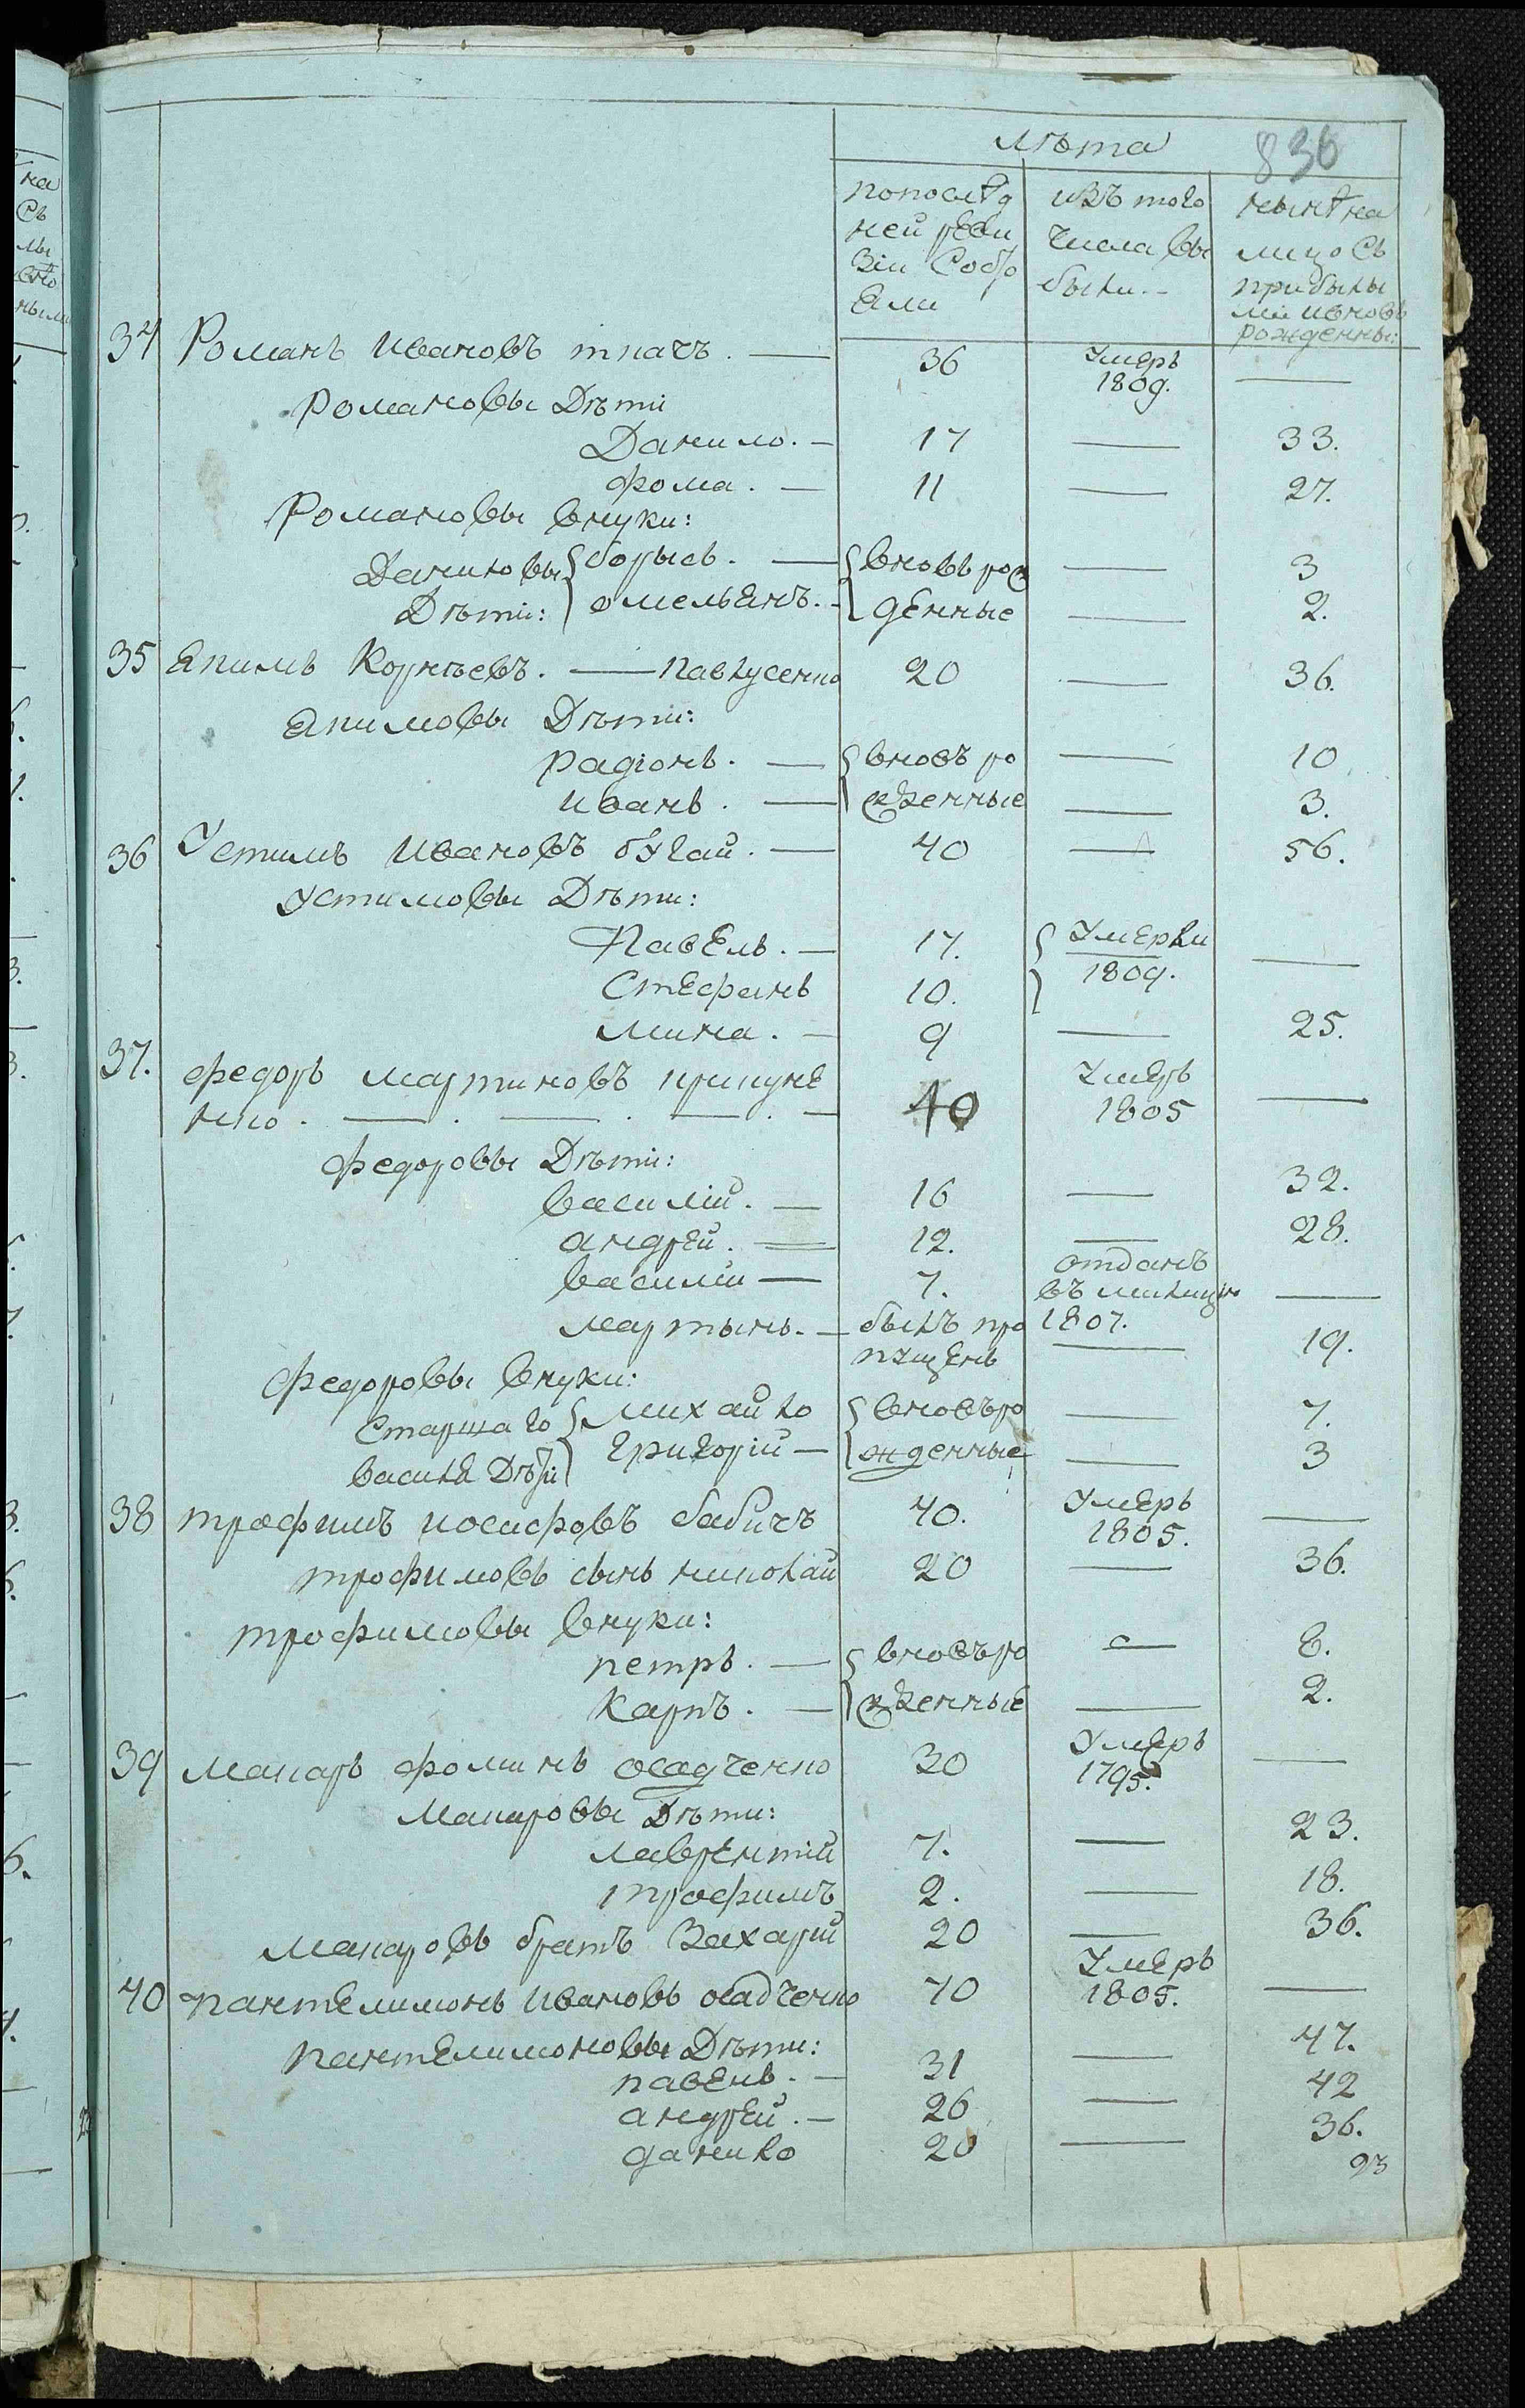 лѣта 836
попослѣд изъ того нынѣ на
ней реви числа вы лицо съ
зіи состо были. — прибылы
яли ми ивновь
рожденны:
34 Романъ Ивановъ ткачъ. — 36 Умеръ 1809. —
Романовы Дѣти
Данило. — 17 — 33.
Фома. — 11 — 27.
Романовы внуки:
Даниловы { борысъ. — { вновь рож — 3
Дѣти: омельянъ. — денные — 2.
35 Якимъ Корнѣевъ. — Павлусенко 20 — 36.
Якимовы Дѣти:
Радіонъ. — { вновъ ро — 10
Иванъ. — жденные — 3.
36 Устимъ Ивановъ бугай. — 40 — 56.
Устимовы Дѣти:
Павелъ. — 17. { Умерли
Стефанъ 10. 1809. —
Мина. — 9 — 25.
37. Федоръ Мартиновъ
40 Умеръ 1805 —
Федоровы Дѣти:
Василій. — 16 — 32.
Андрей. — 12. — 28.
Василій — 7. отданъ въ милицію 1807. —
Мартынъ. — былъ про пущенъ — 19.
Федоровы внуки:
Старшаго { Михайло { вновъ ро — 7.
Василя Дѣти Григорій — жденные — 3
38 Трофимъ Иосифовъ бабичъ 40. Умеръ 1805. —
Трофимовъ сынъ николай 20 — 36.
Трофимовы внуки:
Петръ. — { вновъ ро — 8.
Карпъ. — жденные — 2.
39 Макаръ Фоминъ осадченко 30 Умеръ 1795. —
Макаровы Дѣти:
Лаврентій 7. — 23.
Трофимъ 2. — 18.
Макаровъ братъ Захарій 20 — 36.
40 Пантелимонъ Ивановъ осадченко 70 Умеръ 1805. —
Пантелимоновы Дѣти:
Павелъ. — 31 — 47.
Андрей. — 26 — 42
Данило 20 — 36.